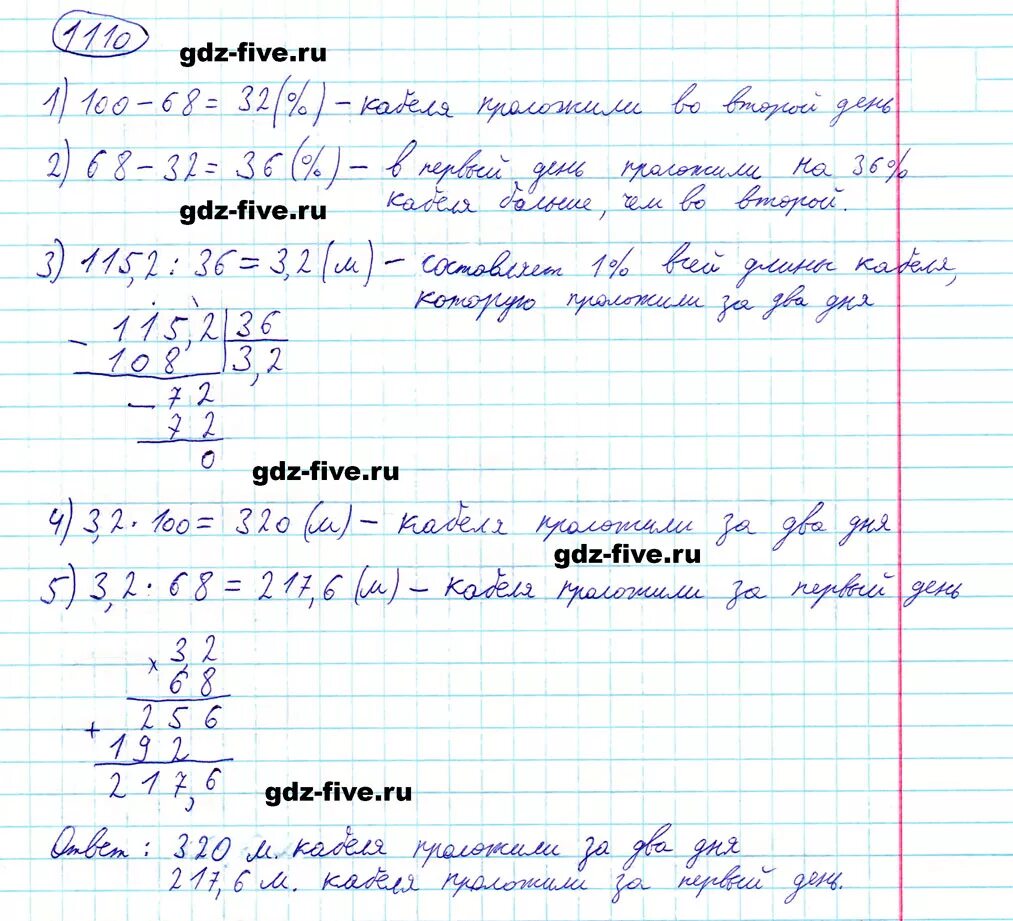 1110
gdz-five.ru
1) 100 - 68 = 32 (%) - кабеля проложили во второй день
2) 68 - 32 = 36 (%) - в первый день проложили на 36%
кабеля больше, чем во второй.
gdz-five.ru
3) 115,2 : 36 = 3,2 (м) - составляет 1% всей длины кабеля,
которую проложили за два дня
115,2 | 36
- 108 | 3,2
- 72
72
0
gdz-five.ru
4) 3,2 · 100 = 320 (м) - кабеля проложили за два дня
gdz-five.ru
5) 3,2 · 68 = 217,6 (м) - кабеля проложили за первый день
× 3,2
68
+ 256
192
217,6
gdz-five.ru
Ответ: 320 м. кабеля проложили за два дня
217,6 м. кабеля проложили за первый день.